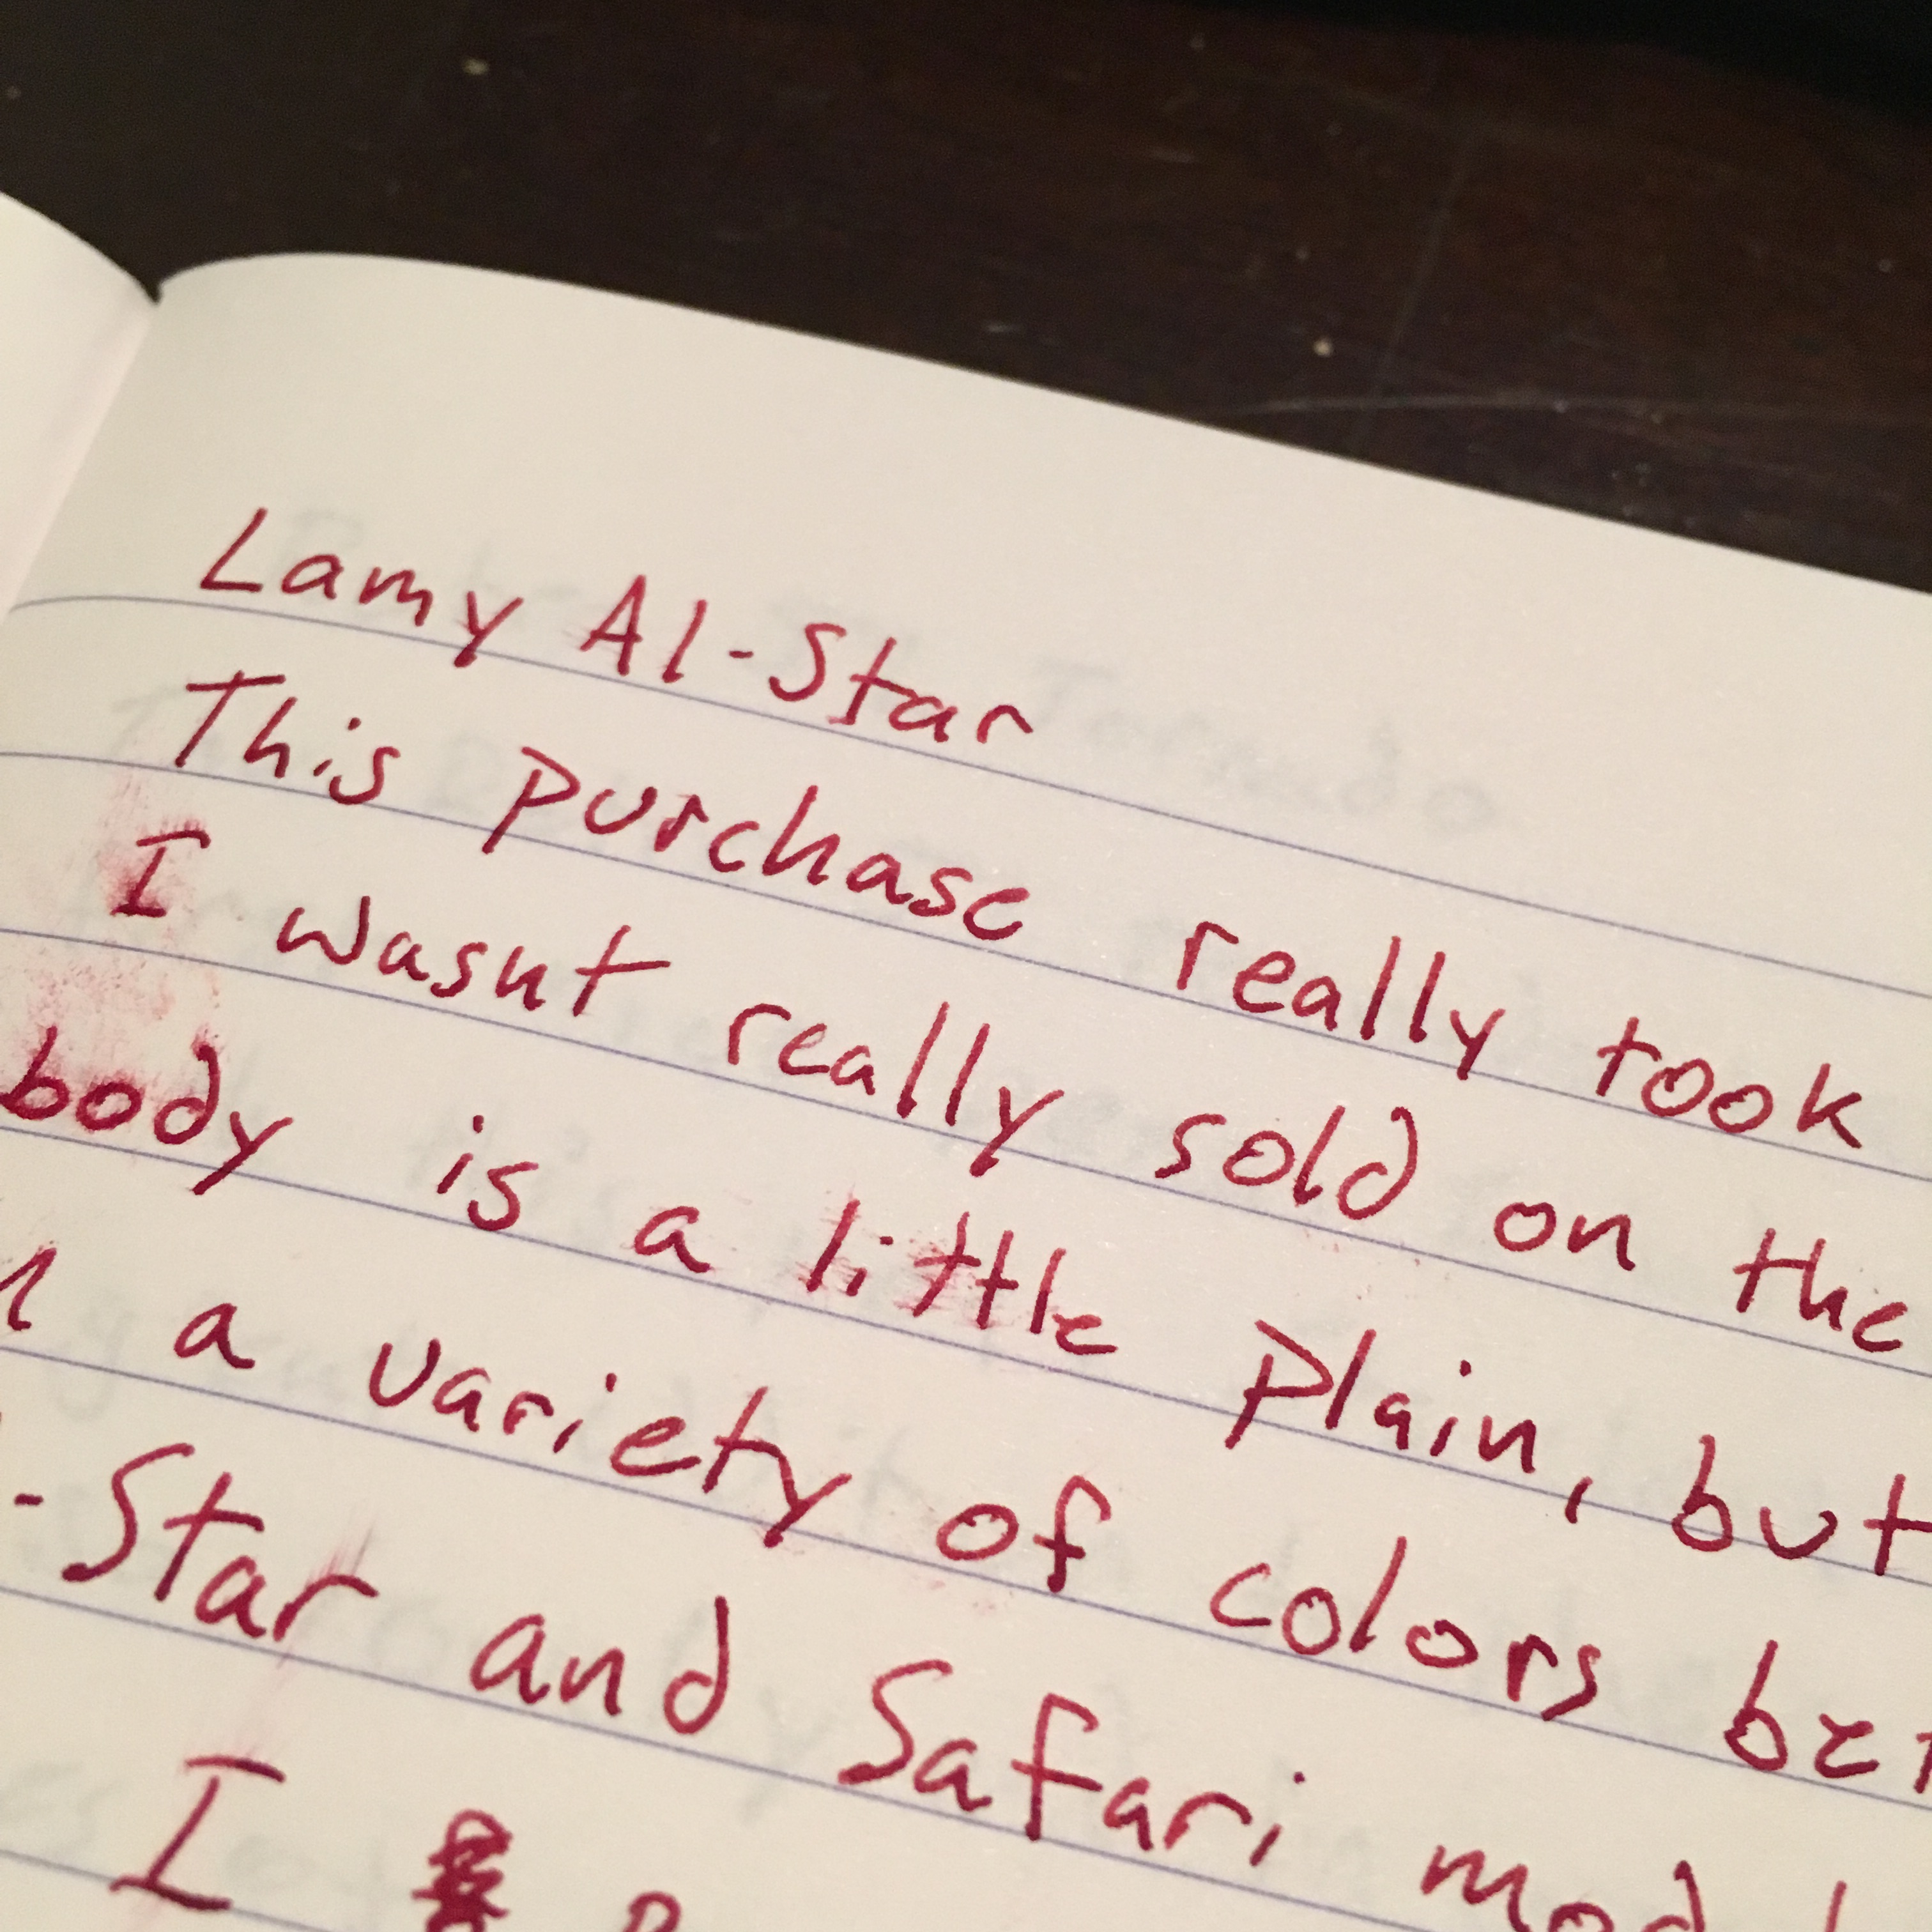 Lamy Al-Star
This purchase really took
I wasnt really sold on the
body is a little plain, but
a variety of colors
-Star and Safari
I